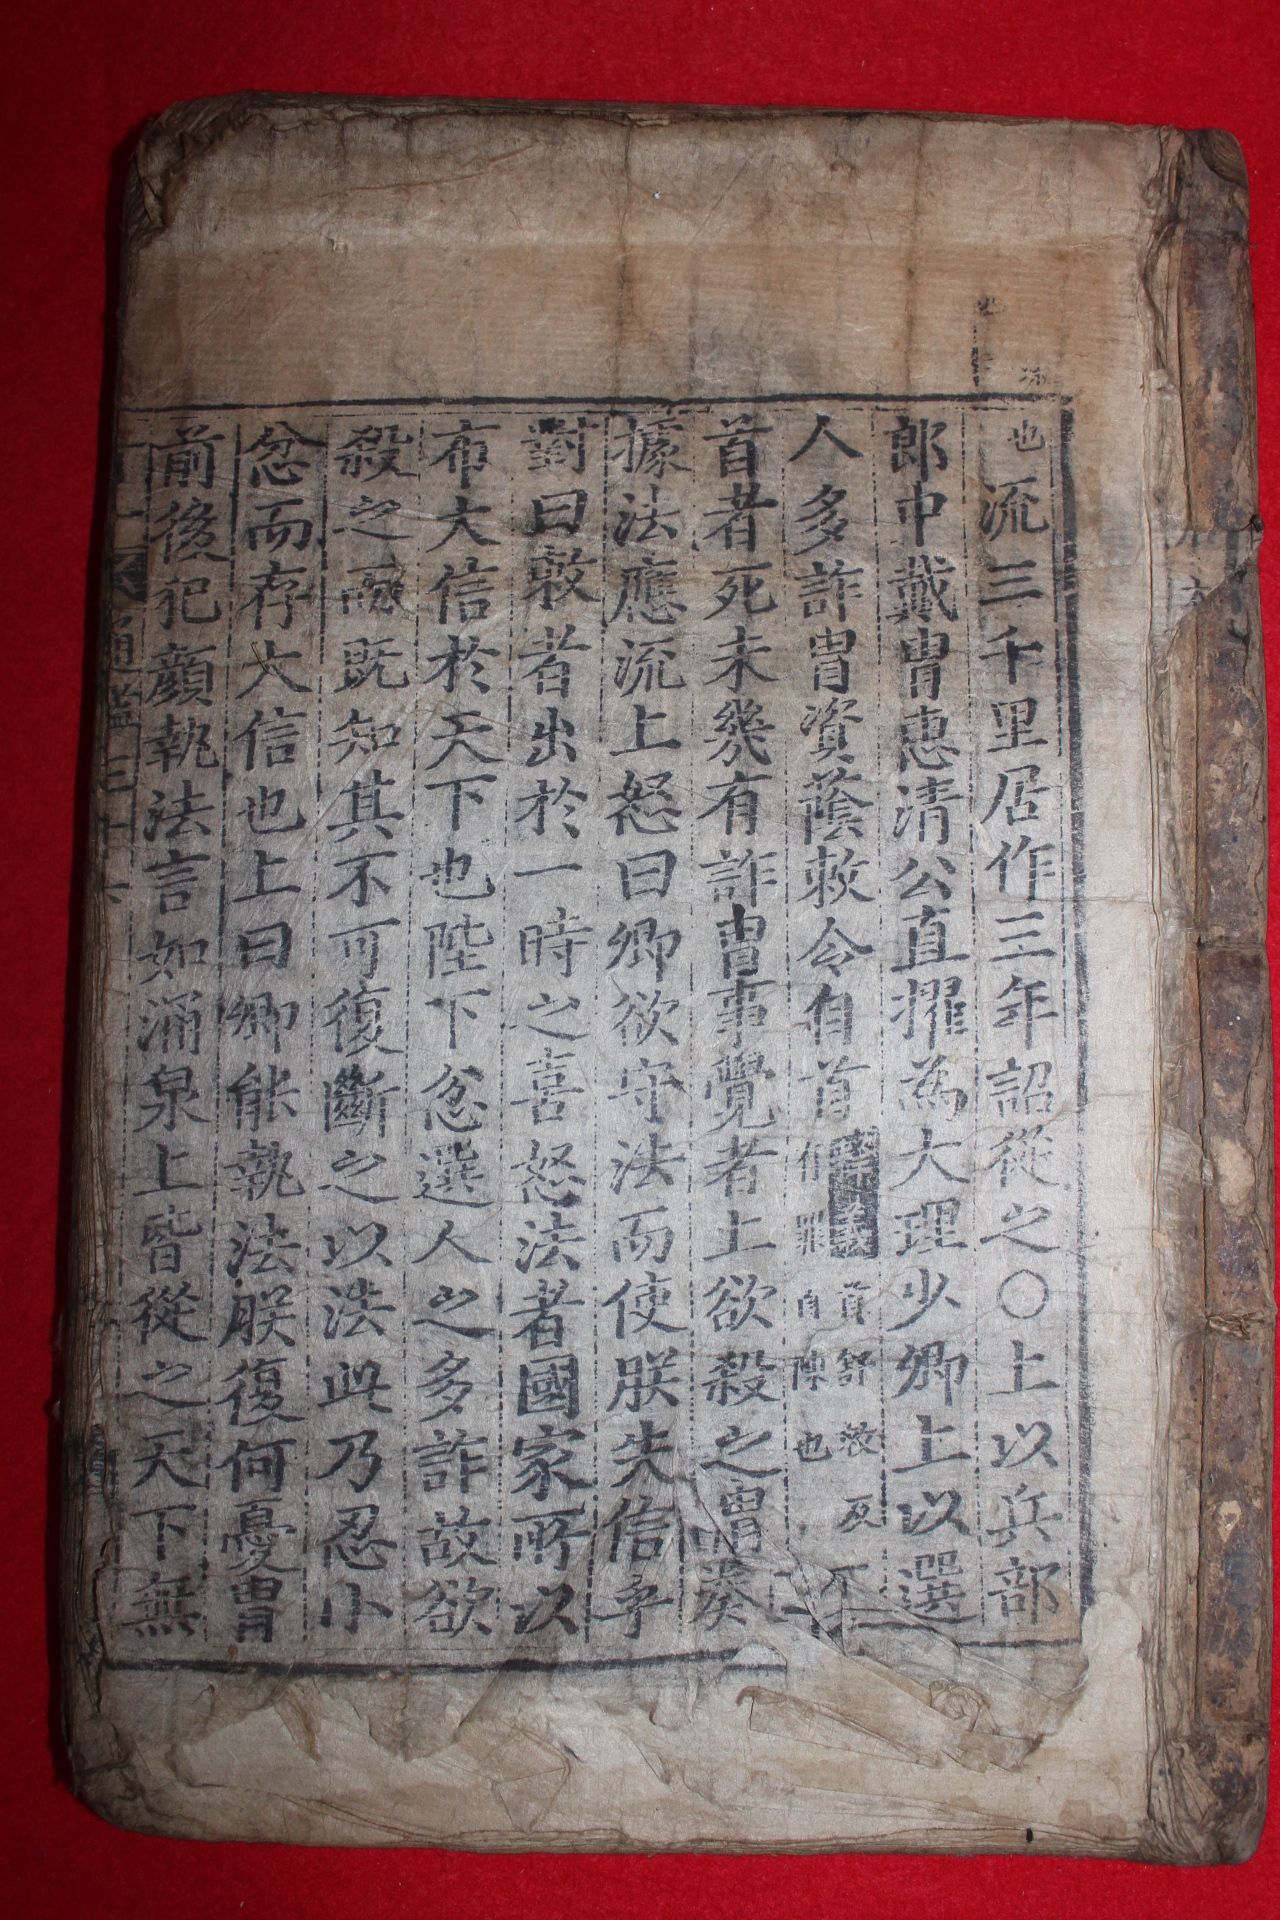 也流三千里居作三年詔從之○上以兵部
郎中戴胄惠清公直擢為大理少卿上以選
人多詐冒資蔭敕令自首首舒救反有罪自陳也不
首者死未幾有詐冒事覺者上欲殺之胄奏
據法應流上怒曰卿欲守法而使朕失信乎
對曰敕者出於一時之喜怒法者國家所以
布大信於天下也陛下忿選人之多詐故欲
殺之而既知其不可復斷之以法此乃忍小
忿而存大信也上曰卿能執法朕復何憂胄
前後犯顏執法言如涌泉上皆從之天下無
通鑑三十